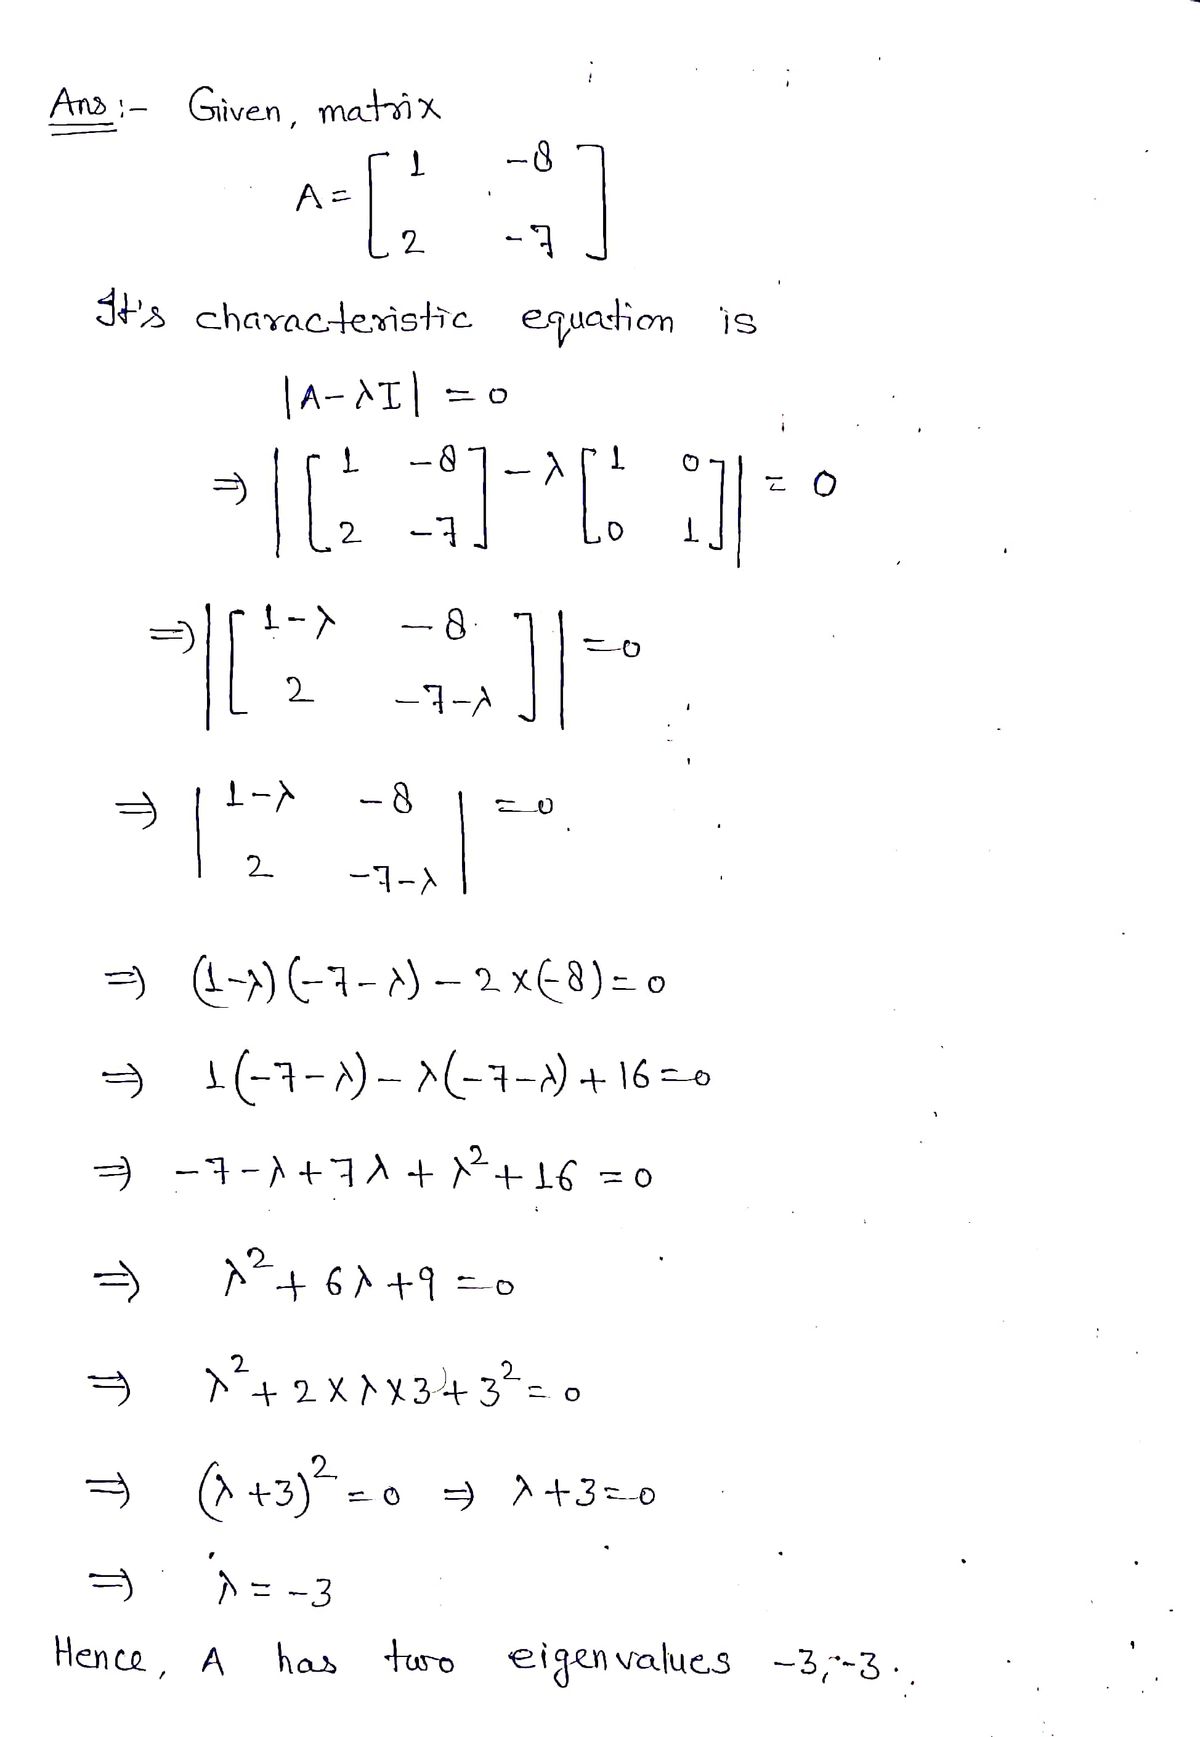 Ans :- Given, matrix
A = [ 1 -8
2 -7 ]
It's characteristic equation is
|A-λI| = 0
⇒ |[ 1 -8
2 -7 ] - λ [ 1 0
0 1 ]| = 0
⇒ |[ 1-λ -8
2 -7-λ ]| = 0
⇒ | 1-λ -8
2 -7-λ | = 0
⇒ (1-λ)(-7-λ) - 2×(-8) = 0
⇒ 1(-7-λ) - λ(-7-λ) + 16 = 0
⇒ -7-λ+7λ+λ²+16 = 0
⇒ λ²+6λ+9 = 0
⇒ λ²+2×λ×3+3² = 0
⇒ (λ+3)² = 0 ⇒ λ+3 = 0
⇒ λ = -3
Hence, A has two eigenvalues -3,-3.